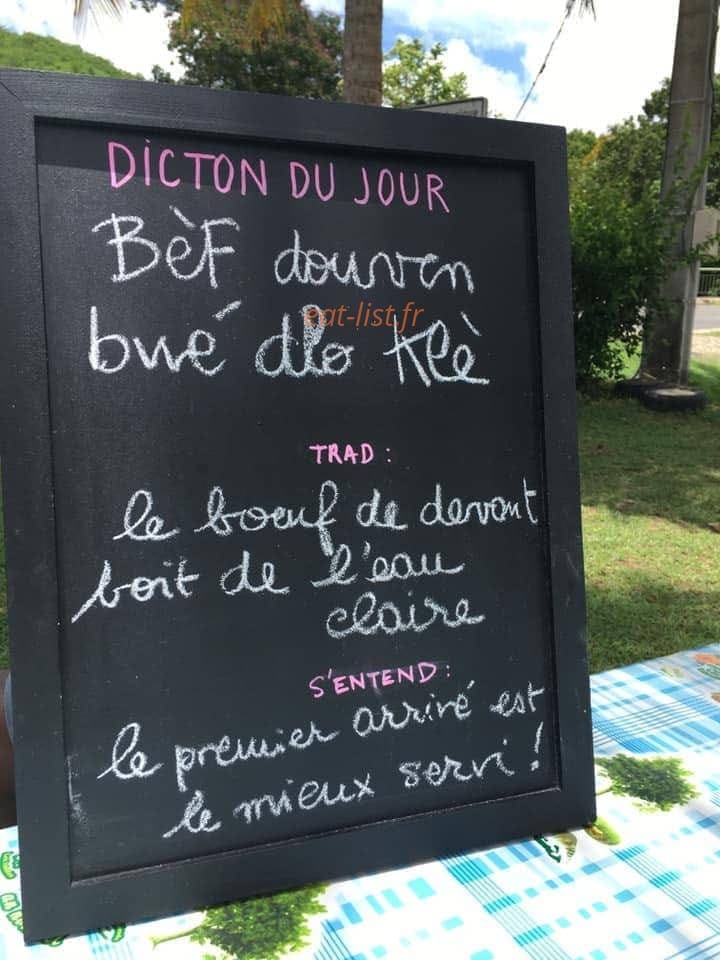 DICTON DU JOUR
BèF douven
bwé dlo klè
eat-list.fr
TRAD :
le boeuf de devant
boit de l'eau
claire
S'ENTEND :
le premier arrivé est
le mieux servi !